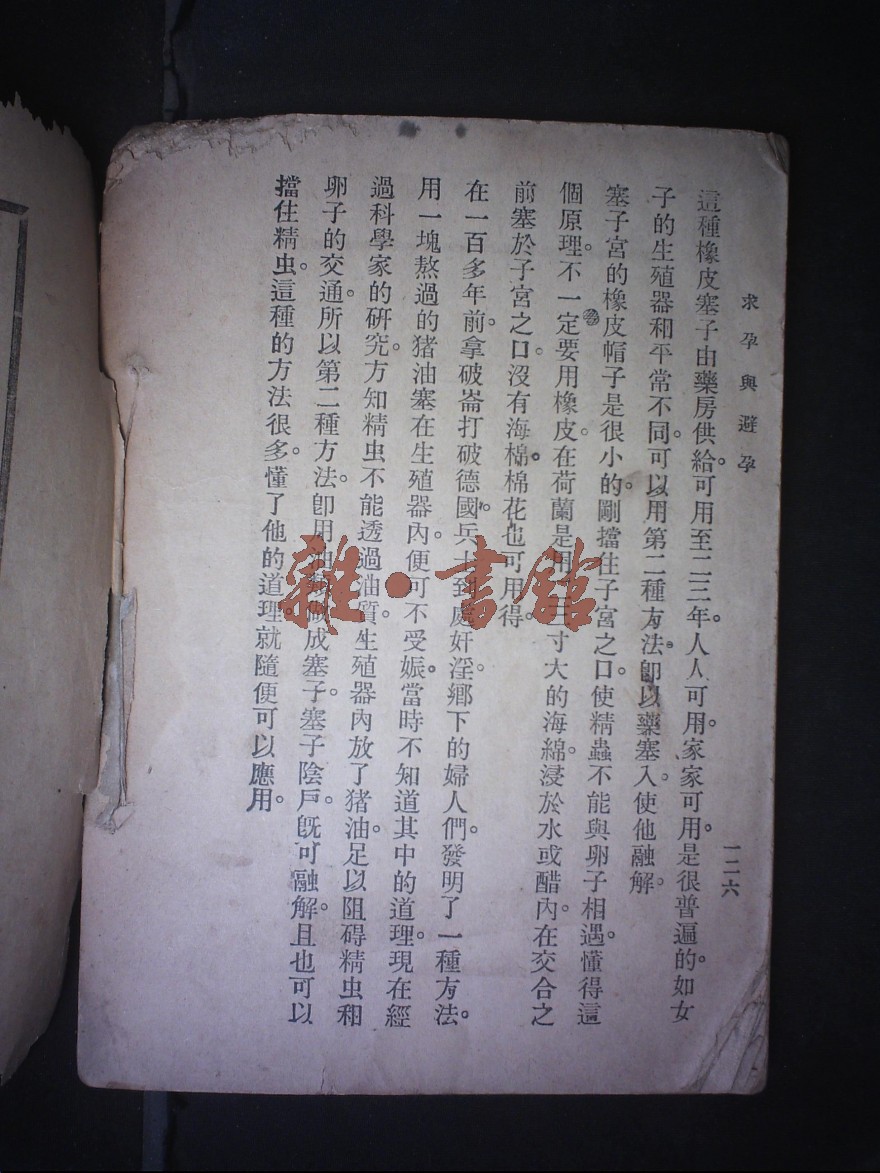 求孕與避孕
一二六
這種橡皮塞子由藥房供給。可用至二三年。人人可用。家家可用。是很普遍的。如女
子的生殖器和平常不同。可以用第二種方法。卽以藥塞入。使他融解。
塞子宮的橡皮帽子是很小的。剛擋住子宮之口。使精蟲不能與卵子相遇。懂得這
個原理。不一定要用橡皮。在荷蘭是用二三寸大的海綿。浸於水或醋內。在交合之
前塞於子宮之口。沒有海棉。棉花也可用得。
在一百多年前。拿破崙打破德國。兵士到處奸淫。鄉下的婦人們。發明了一種方法。
用一塊熬過的猪油塞在生殖器內。便可不受娠。當時不知道其中的道理。現在經
過科學家的研究。方知精虫不能透過油質。生殖器內放了猪油。足以阻碍精虫和
卵子的交通。所以第二種方法。卽用油類做成塞子。塞子陰戶。旣可融解。且也可以
擋住精虫。這種的方法很多。懂了他的道理。就隨便可以應用。
雜·書館